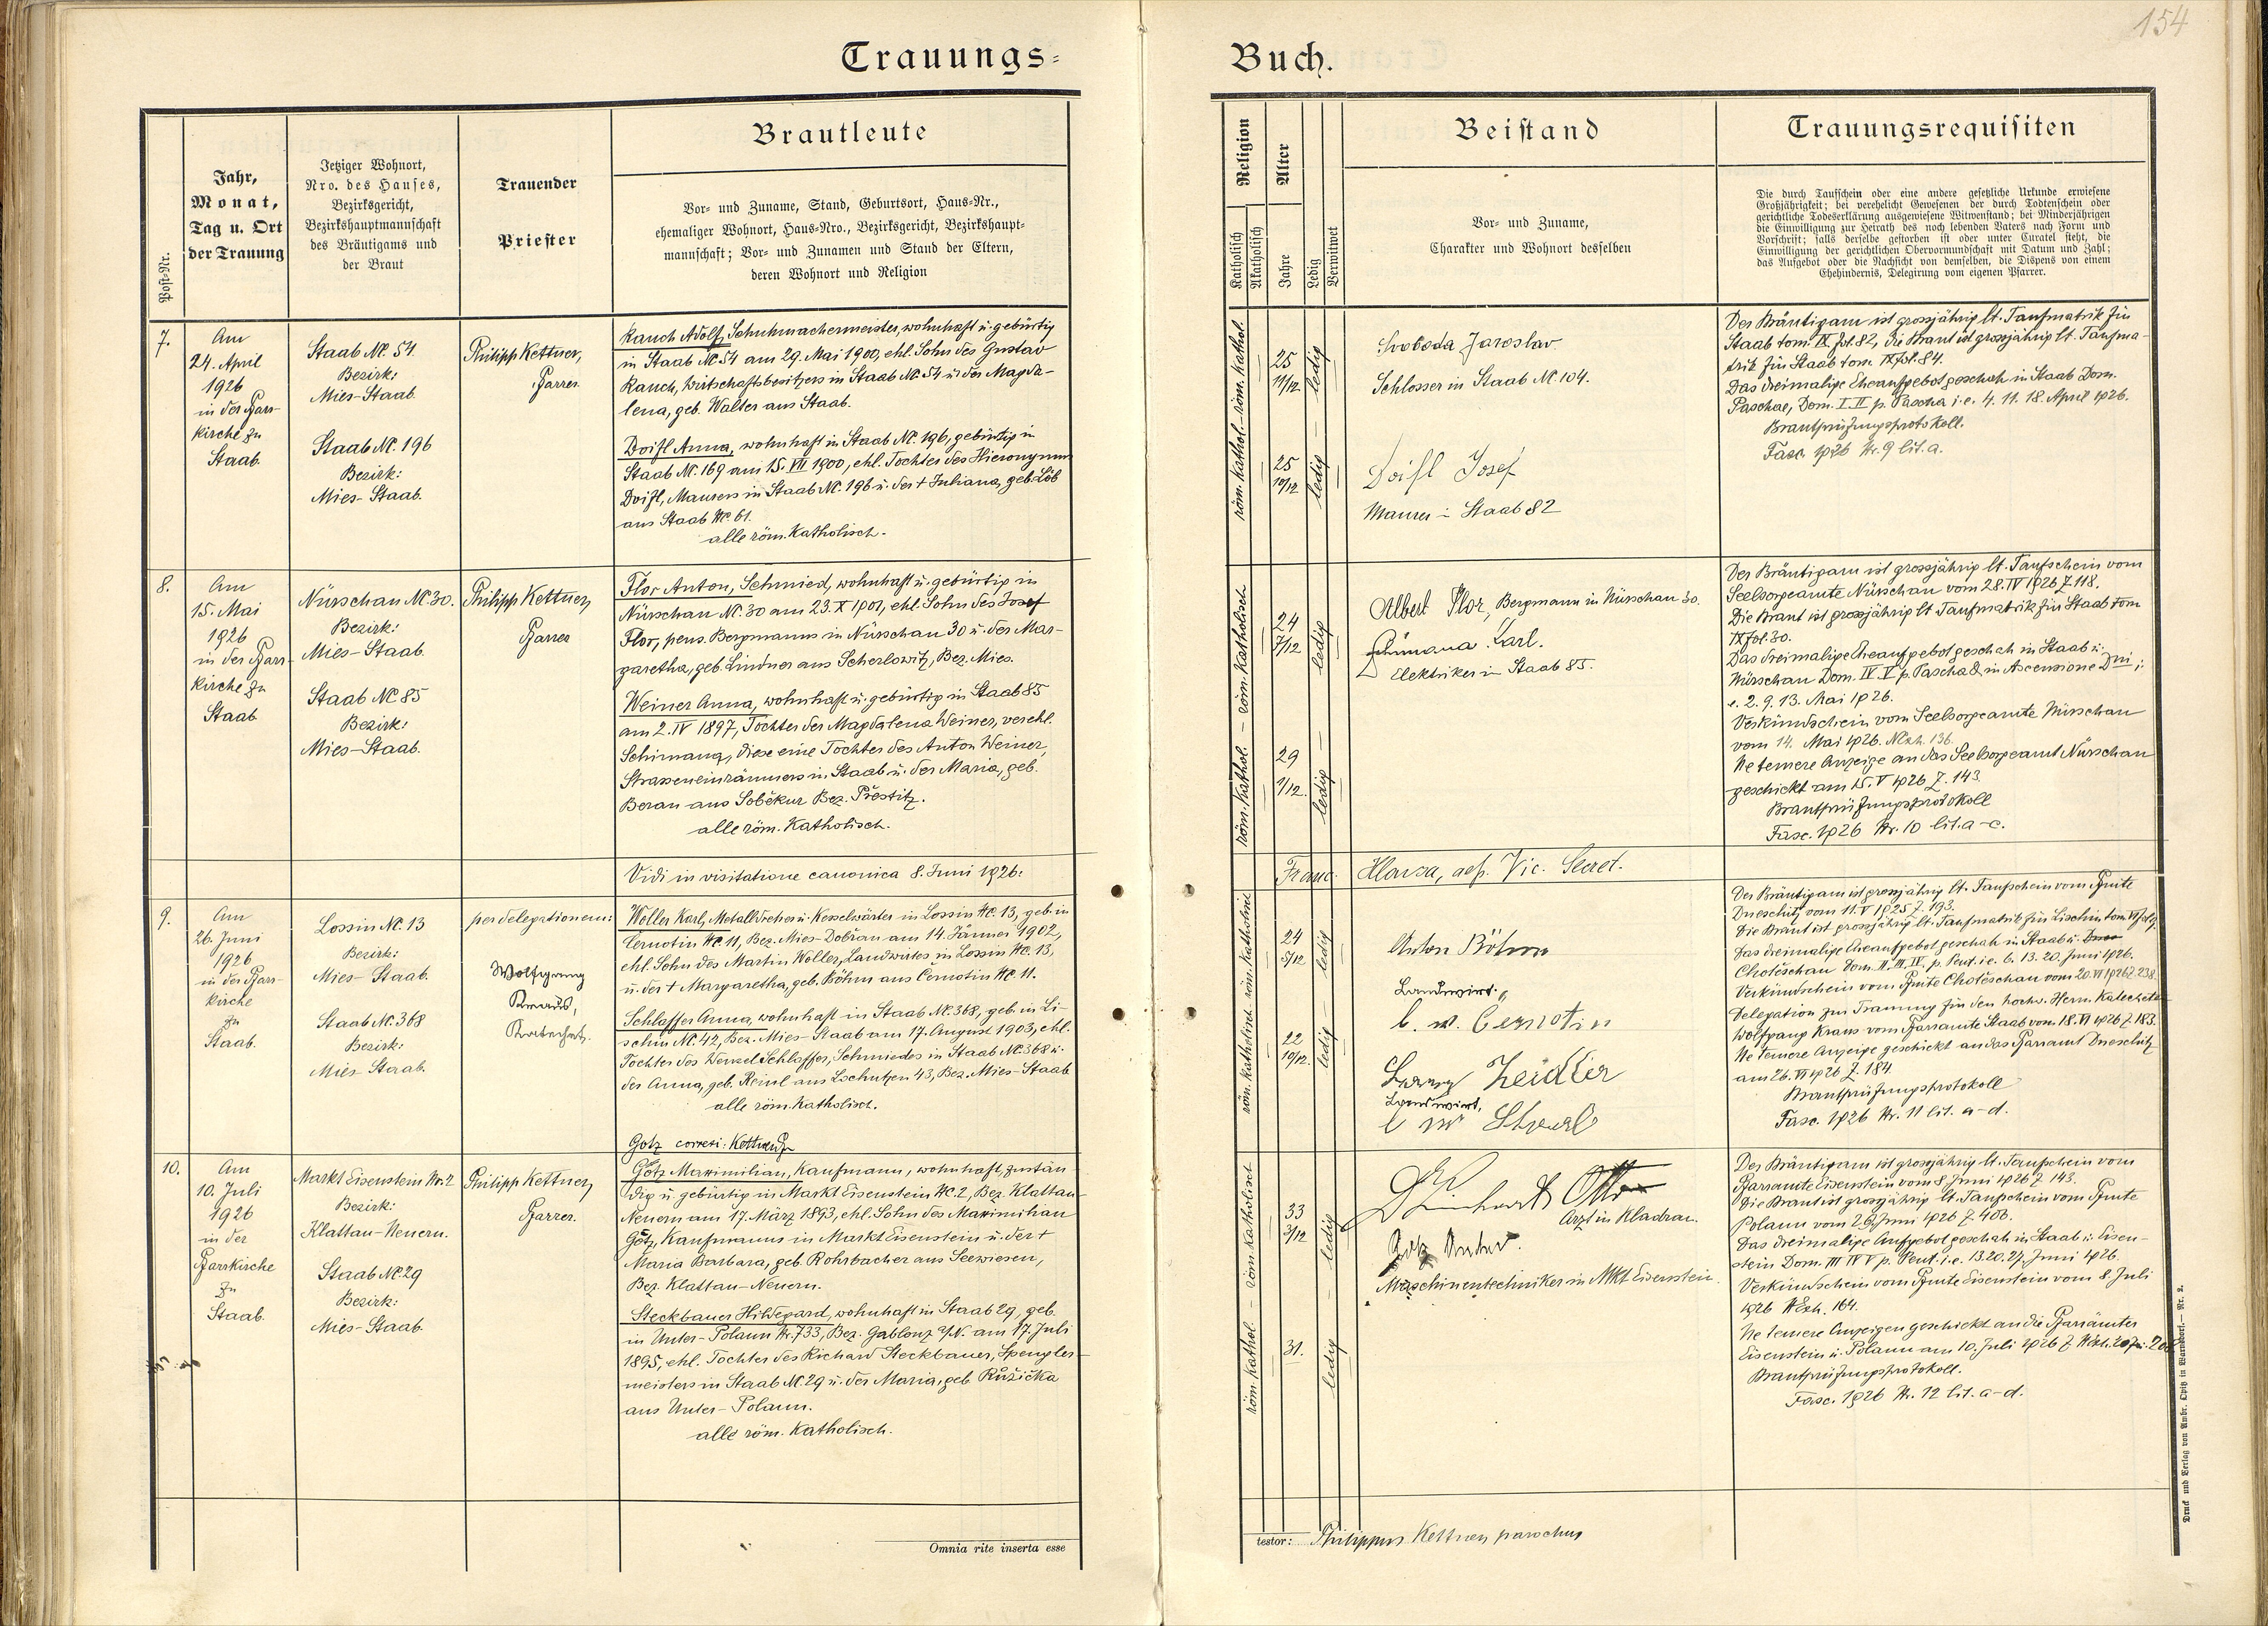 154
Trauungs=
Buch.
Post-Nr.
Jahr,
Monat,
Tag u. Ort
der Trauung
Jetziger Wohnort,
Nro. des Hauses,
Bezirksgericht,
Bezirkshauptmannschaft
des Bräutigams und
der Braut
Trauender
Priester
Brautleute
Vor- und Zuname, Stand, Geburtsort, Haus-Nr.,
ehemaliger Wohnort, Haus-Nro., Bezirksgericht, Bezirkshaupt=
mannschaft; Vor- und Zunamen und Stand der Eltern,
deren Wohnort und Religion
Religion
Katholisch
Akatholisch
Alter
Jahre
Ledig
Verwitwet
Beistand
Vor- und Zuname,
Charakter und Wohnort desselben
Trauungsrequisiten
Die durch Taufschein oder eine andere gesetzliche Urkunde erwiesene
Großjährigkeit; bei verehelicht Gewesenen der durch Todtenschein oder
gerichtliche Todeserklärung ausgewiesene Witwenstand; bei Minderjährigen
die Einwilligung zur Heirath des noch lebenden Vaters nach Form und
Vorschrift; falls derselbe gestorben ist oder unter Curatel steht, die
Einwilligung der gerichtlichen Obervormundschaft mit Datum und Zahl;
das Aufgebot oder die Nachsicht von demselben, die Dispens von einem
Ehehindernis, Delegirung vom eigenen Pfarrer.
7.
Am
24. April
1926
in der Pfarr-
kirche zu
Staab.
Staab Nc. 54.
Bezirk:
Mies-Staab.
Staab Nc. 196
Bezirk:
Mies-Staab.
Philipp Kettner,
Pfarrer.
Rauch Adolf, Schuhmachermeister, wohnhaft u. gebürtig
in Staab Nc. 54 am 29. Mai 1900, ehl. Sohn des Gustav
Rauch, Wirtschaftsbesitzers in Staab Nc. 54 u. der Magda-
lena, geb. Walter aus Staab.
Doifl Anna, wohnhaft in Staab Nc. 196, gebürtig in
Staab Nc. 169 am 15. VII 1900, ehl. Tochter des Hieronymus
Doifl, Maurers in Staab Nc. 196 u. der † Juliana, geb. Löb
aus Staab Nc. 61.
alle röm. Katholisch.
röm. kathol. – röm. kathol.
25
11/12
25
10/12
ledig – ledig
Svoboda Jaroslav
Schlosser in Staab Nc. 104.
Doifl Josef
Maurer in Staab 82
Der Bräutigam ist grossjährig lt. Taufmatrik für
Staab tom. IX fol. 82, die Braut ist grossjährig lt. Taufma-
trik für Staab tom. IX fol. 84.
Das dreimalige Eheaufgebot geschah in Staab Dom.
Paschae, Dom. I. II p. Pascha i. e. 4. 11. 18. April 1926.
Brautprüfungsprotokoll.
Fasc. 1926 Nr. 9 lit. a.
8.
Am
15. Mai
1926
in der Pfarr-
kirche zu
Staab
Nürschan Nc. 30.
Bezirk:
Mies-Staab.
Staab Nc 85
Bezirk:
Mies-Staab.
Philipp Kettner,
Pfarrer
Flor Anton, Schmied, wohnhaft u. gebürtig in
Nürschan Nc. 30 am 23. X 1901, ehl. Sohn des Josef
Flor, pens. Bergmanns in Nürschan 30 u. der Mar-
garetha, geb. Lindner aus Scherlowitz, Bez. Mies.
Weiner Anna, wohnhaft u. gebürtig in Staab 85
am 2. IV 1897, Tochter der Magdalena Weiner, verehl.
Schimana, diese eine Tochter des Anton Weiner,
Strasseneinräumers in Staab u. der Maria, geb.
Beran aus Soběkur Bez. Přestitz.
alle röm. Katholisch.
röm. kathol. – röm. katholisch
24
7/12
29
1/12.
ledig – ledig
Albert Flor, Bergmann in Nürschan 30.
Schimana Karl.
Elektriker in Staab 85.
Der Bräutigam ist grossjährig lt. Taufschein vom
Seelsorgeamte Nürschan vom 28. IV 1926 Z. 118.
Die Braut ist grossjährig lt. Taufmatrik für Staab tom
IX fol. 30.
Das dreimalige Eheaufgebot geschah in Staab u.
Nürschan Dom. IV. V p. Pascha & in Ascensione Dni i.
e. 2. 9. 13. Mai 1926.
Verkündschein vom Seelsorgeamte Nürschan
vom 14. Mai 1926. NExh. 136.
Ne temere Anzeige an das Seelsorgeamt Nürschan
geschickt am 15. V 1926 Z. 143
Brautprüfungsprotokoll
Fasc. 1926 Nr. 10 lit. a-c.
Vidi in visitatione canonica 8. Juni 1926:
Franc. Vic. Secret.
9.
Am
26. Juni
1926
in der Pfarr-
kirche
zu
Staab.
Lossin Nc. 13
Bezirk:
Mies-Staab.
Staab Nc. 368
Bezirk:
Mies-Staab.
per delegationem:
Wolfgang
Kraus,
Katechet.
Woller Karl, Metalldreher u. Kesselwärter in Lossin Nc. 13, geb. in
Černotin Nc. 11, Bez. Mies-Dobřan am 14. Jänner 1902,
ehl. Sohn des Martin Woller, Landwirtes in Lossin Nc. 13,
u. der † Margaretha, geb. Böhm aus Černotin Nc. 11.
Schlaffer Anna, wohnhaft in Staab Nc. 368, geb. in Li-
schin Nc. 42, Bez. Mies-Staab am 17. August 1903, ehl.
Tochter des Wenzel Schlaffer, Schmiedes in Staab Nc. 368 u.
der Anna, geb. Reinl aus 43, Bez. Mies-Staab
alle röm. Katholisch.
röm. katholisch – röm. katholisch
24
5/12
22
10/12.
ledig – ledig
Anton Böhm
Landwirt
Černotin
Zeidler
Landwirt,
Der Bräutigam ist grossjährig lt. Taufschein vom Pfarramte
Dneschitz vom 11. V 1925 Z. 193.
Die Braut ist grossjährig lt. Taufmatrik für Lischin tom. VI fol 9.
Das dreimalige Eheaufgebot geschah in Staab u.
Chotěschau Dom. II. III. IV. p. Pent. i. e. 6. 13. 20. Juni 1926.
Verkündschein vom Pfarramte Chotěschau vom 20. VI 1926 Z. 238
Delegation zur Trauung für den hochw. Herrn Katecheten
Wolfgang Kraus vom Pfarramte Staab vom 18. VI 1926 Z. 183.
Ne temere Anzeige geschickt an das Pfarramt Dneschitz
am 26. VI 1926 Z. 184
Brautprüfungsprotokoll
Fasc. 1926 Nr. 11 lit. a-d.
Gotz correxi: Kettner Pfr
10.
Am
10. Juli
1926
in der
Pfarrkirche
zu
Staab.
Markt Eisenstein Nr. 2
Bezirk:
Klattau-Neuern.
Staab Nc. 29
Bezirk:
Mies-Staab.
Philipp Kettner,
Pfarrer.
Götz Maximilian, Kaufmann, wohnhaft, zustän
dig u. gebürtig in Markt Eisenstein Nc. 2, Bez. Klattau-
Neuern am 17. März 1893, ehl. Sohn des Maximilian
Götz, Kaufmanns in Markt Eisenstein u. der †
Maria Barbara, geb. Rohrbacher aus Seewiesen,
Bez. Klattau-Neuern.
Steckbauer Hildegard, wohnhaft in Staab 29, geb.
in Unter-Polaun Nr. 733, Bez. Gablonz a/N. am 17. Juli
1895, ehl. Tochter des Richard Steckbauer, Spengler-
meisters in Staab Nc. 29 u. der Maria, geb. Růžička
aus Unter-Polaun.
alle röm. Katholisch.
röm. kathol. – röm. katholisch
33
3/12
31.
ledig – ledig
Otto
Arzt in Kladrau.
Maschinentechniker in Mkt. Eisenstein.
Der Bräutigam ist grossjährig lt. Taufschein vom
Pfarramte Eisenstein vom 8. Juni 1926 Z. 143.
Die Braut ist grossjährig lt. Taufschein vom Pfarramte
Polaun vom 26. Juni 1926 Z. 406.
Das dreimalige Aufgebot geschah in Staab u. Eisen-
stein Dom. III IV V p. Pent. i. e. 13. 20. 27. Juni 1926.
Verkündschein vom Pfarramte Eisenstein vom 8. Juli
1926 NExh. 164.
Ne temere Anzeigen geschickt an die Pfarrämter
Eisenstein u. Polaun am 10. Juli 1926 Z.
Brautprüfungsprotokoll.
Fasc. 1926 Nr. 12 lit. a-d.
Omnia rite inserta esse
testor: Philippus Kettner parochus
Druck und Verlag von Ambr. Opitz in Warnsdorf. — Nr. 2.